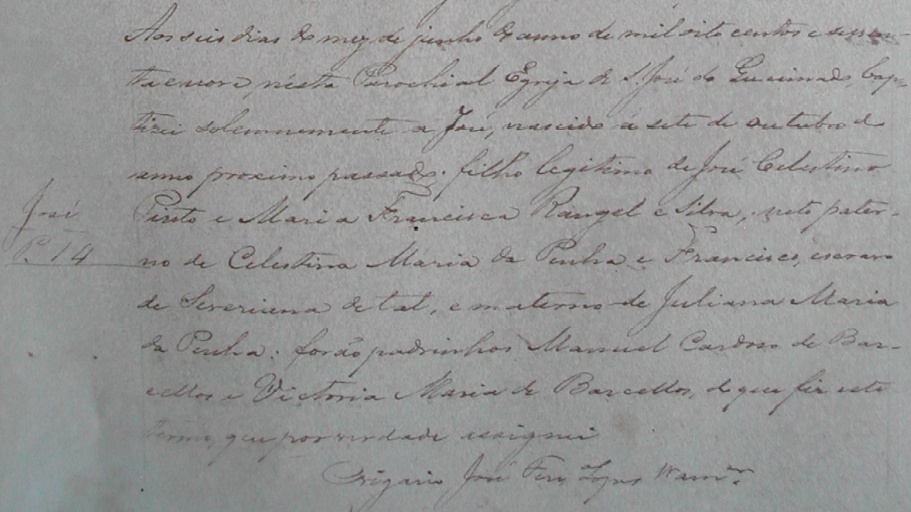 Aos seis dias do mez de junho do anno de mil oito centos e sessen-
ta e nove, nésta Parochial Egreja de S. José do Queimado, bap-
tizei solemnemente a José, nascido á sete de outubro do
anno proximo passado; filho legitimo de José Celestino
Pinto e Maria Francisca Rangel e Silva, neto pater-
José
no de Celestina Maria da Penha e Francisco, escravo
P. 14
de Severiana de tal, e materno de Juliana Maria
da Penha: forão padrinhos Manuel Cardoso de Bar-
cellos e Victoria Maria de Barcellos, do que fiz este
termo, que por verdade assignei
O Vigario José